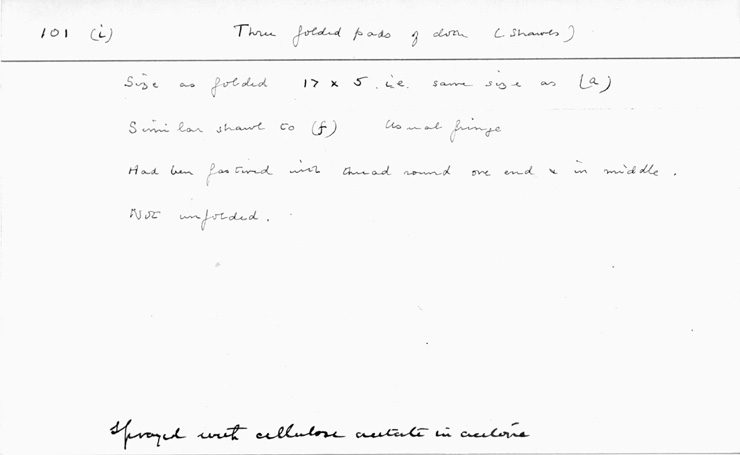 101 (i) Three folded pads of cloth (shawls)
Size as folded 17 x 5. i.e. same size as (a)
Similar shawl to (f) Usual fringe
Had been fastened with thread round one end & in middle.
Not unfolded.
Sprayed with cellulose acetate in acetone